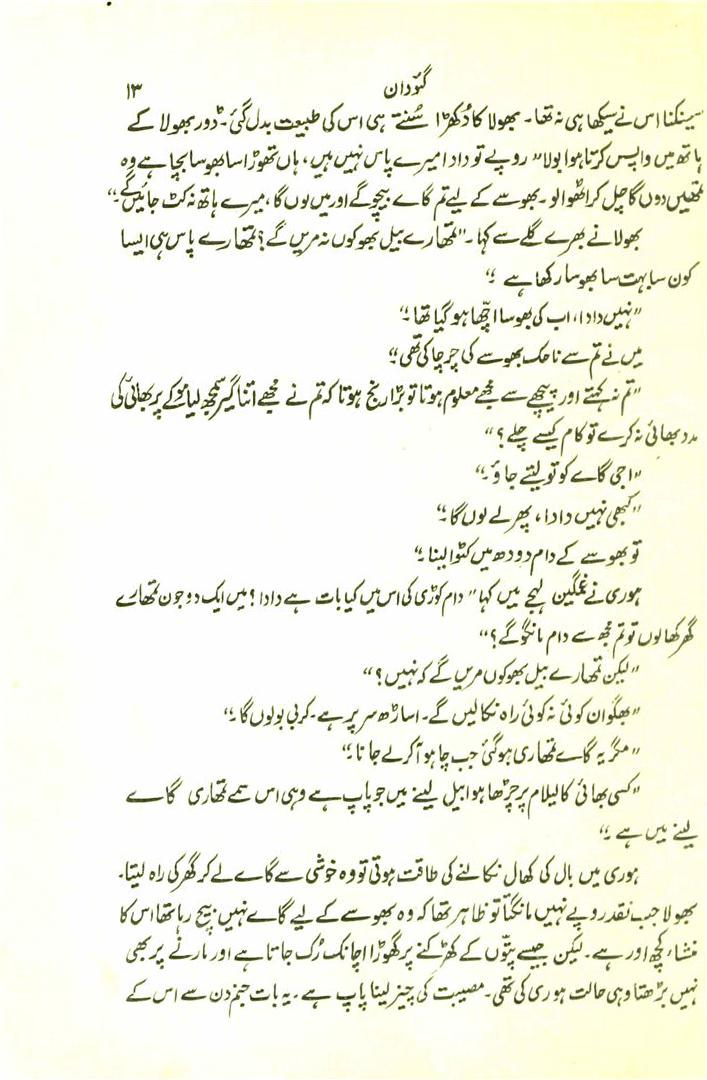 گئودان ۱۳
سینکنا اس نے سیکھا ہی نہ تھا۔ بھولا کا دُکھڑا سُنتے ہی اس کی طبیعت بدل گئی۔ ڈور بھولا کے
ہاتھ میں واپس کرتا ہوا بولا "روپے تو دادا میرے پاس نہیں ہیں، ہاں تھوڑا سا بھوسا بچا ہے وہ
تمھیں دوں گا چل کر اٹھوا لو۔ بھوسے کے لیے تم گاے بیچو گے اور میں لوں گا، میرے ہاتھ نہ کٹ جائیں گے۔"
بھولا نے بھرے گلے سے کہا۔ "تمھارے بیل بھوکوں نہ مریں گے؟ تمھارے پاس ہی ایسا
کون سا بہت سا بھوسا رکھا ہے۔"
"نہیں دادا، اب کی بھوسا اچھّا ہو گیا تھا۔"
میں نے تم سے ناحک بھوسے کی چرچا کی تھی۔"
"تم نہ کہتے اور پیچھے سے مجھے معلوم ہوتا تو بڑا رنج ہوتا کہ تم نے مجھے اتنا گیر سمجھ لیا موکے پر بھائی کی
مدد بھائی نہ کرے تو کام کیسے چلے؟"
"اجی گاے کو تو لیتے جاؤ۔"
"کبھی نہیں دادا، پھر لے لوں گا۔"
تو بھوسے کے دام دودھ میں کٹوا لینا۔"
ہوری نے غمگین لہجے میں کہا "دام کوڑی کی اس میں کیا بات ہے دادا؟ میں ایک دو جون تمھارے
گھر کھا لوں تو تم مجھ سے دام مانگو گے؟"
"لیکن تمھارے بیل بھوکوں مریں گے کہ نہیں؟"
"بھگوان کوئی نہ کوئی راہ نکالیں گے۔ اساڑھ سر پر ہے۔ کربی بو لوں گا۔"
"مگر یہ گاے تمھاری ہو گئی جب چاہو آ کر لے جانا۔"
"کسی بھائی کا لیلام پر چڑھا ہوا بیل لینے میں جو پاپ ہے وہی اس سمے تمھاری گاے
لینے میں ہے۔"
ہوری میں بال کی کھال نکالنے کی طاقت ہوتی تو وہ خوشی سے گاے لے کر گھر کی راہ لیتا۔
بھولا جب نقد روپے نہیں مانگتا تو ظاہر تھا کہ وہ بھوسے کے لیے گاے نہیں بیچ رہا تھا اس کا
منشاء کچھ اور ہے۔ لیکن جیسے پتّوں کے کھڑکنے پر گھوڑا اچانک رُک جاتا ہے اور مارنے پر بھی
نہیں بڑھتا وہی حالت ہوری کی تھی۔ مصیبت کی چیز لینا پاپ ہے۔ یہ بات جنم دن سے اس کے